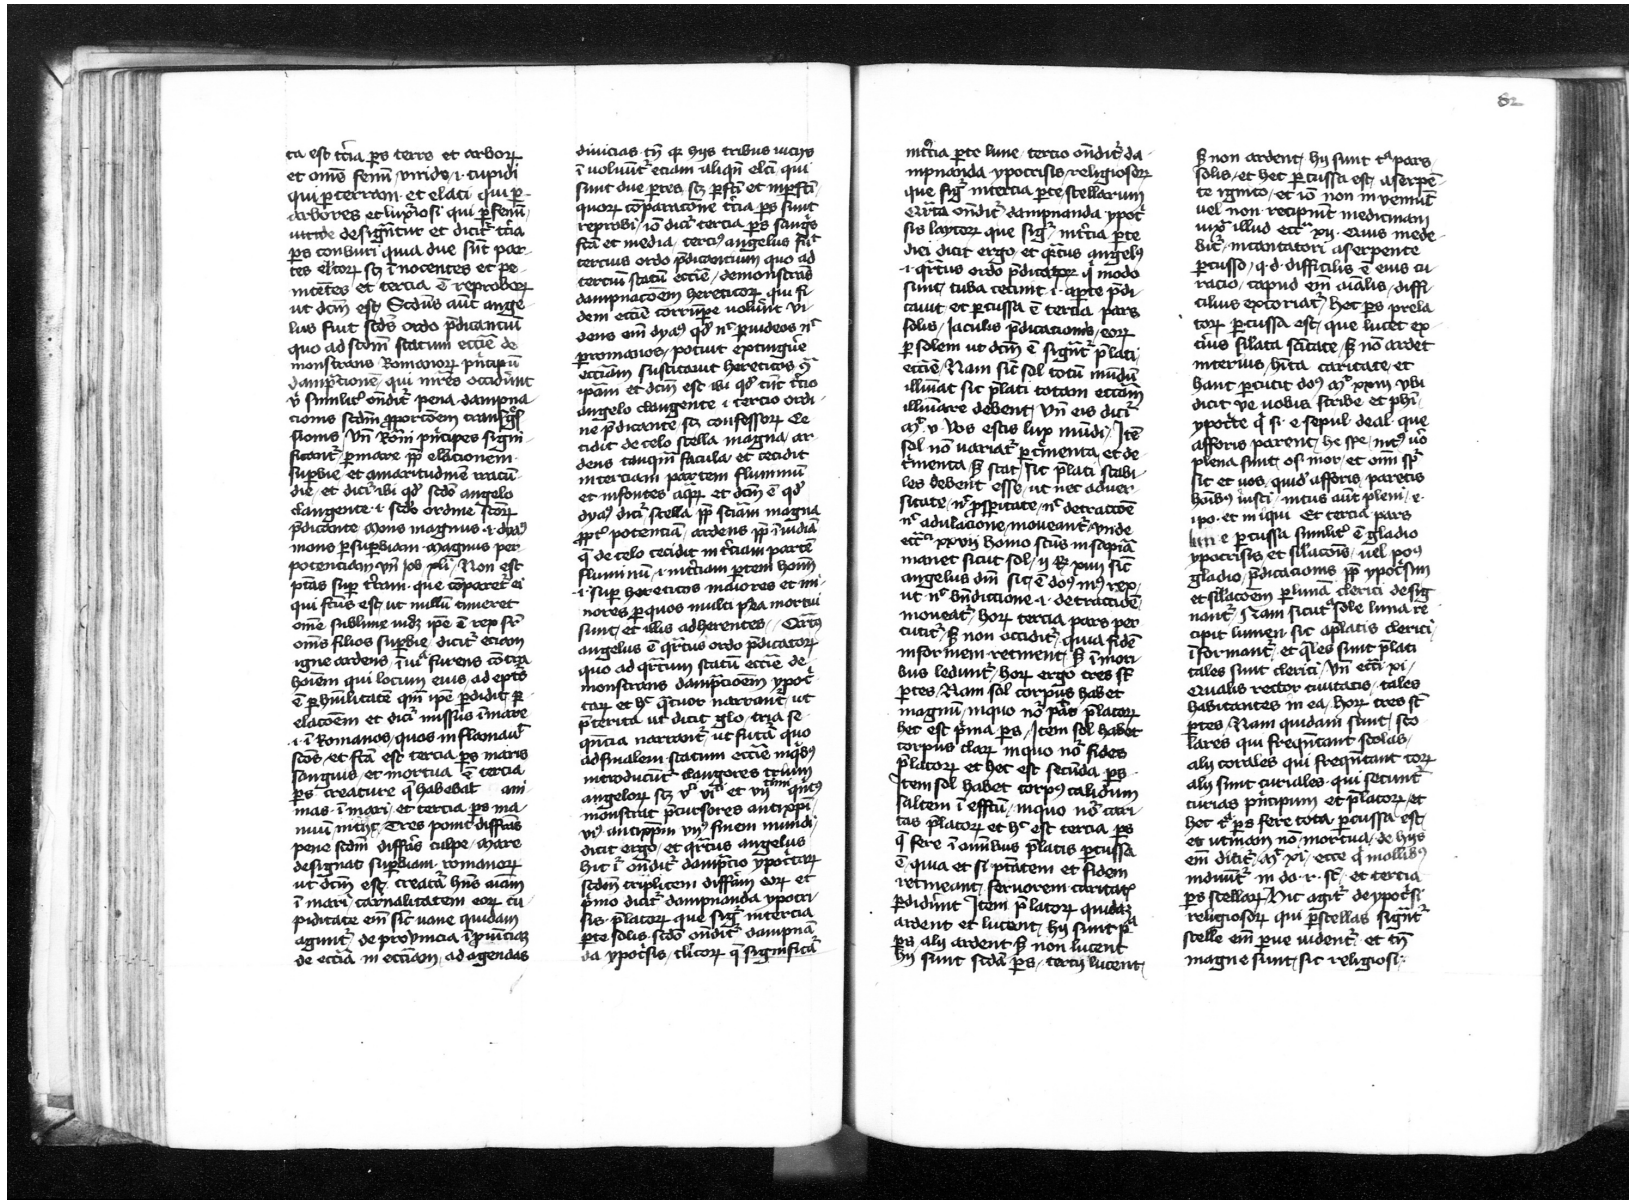 ta est t̄cia ps terre et arborꝝ
et om̄s fenū viride ·i· cupidi
qui p terram · et elati qui p
arbores et luxͦiosi qui p fenū
viride desigñtur et dicit t̄cia
ps comburi quia due sūt par-
tes elc̄orꝝ sꝫ īnocentes et pe-
nitētes et tercia ē reproborꝝ
ut dc̄m est Scd̄us aūt ange-
lus fuit scd̄s ordo p̄dicanciū
quo ad scd̄m statum ecc̄ie de
monstrans Romanorꝝ pͥncipū
dampc̄ionē qui mr̄es occidūt
simulit͛ ōndit͛ pena dampna
cionis scd̄m proportōem transgͣs
sionis Vn̄ Rōni pͥncipes signi
ficant͛ p mare pp̄ elacionem
supbie et amaritudinē iracū-
die et dicit ibi qd̓ scd̄o angelo
clangente ·i· scd̄o ordine
p̄dicante Mons magnus ·i· dyaꝰ
mons p supbiam magnus per
potenciam vn̄ Job xli Non est
ptās sup t̄ram que cōparet͛ ei
qui fc̄us est ut nullū timeret
om̄e sublime videt ipe ē rex sr̄
om̄s filios supbie dicit͛ eciam
igne ardens īuiͣ furens cōtra
hoīem qui locum eius adeptꝰ
ē p hūilitatē qm̄ ipe pdidit p
elacōem et dicit͛ missus ī mare
·i· ī Romanos quos inflamaūt
sc̄os et fc̄a est tercia ps maris
sanguis et mortua ē tercia
ps creature q̄ habebat ani
mas ī mari et tercia ps na
uiū Tres ponit diffr̄as
pene scd̄m diffr̄as culpe Mare
designat supbiam romanorꝝ
ut dc̄m est creatͣ hn̄s aīam
ī mari carnalitatem eorꝝ cu
piditate em̄ sic naue quidam
agunt͛ de prouincia ī puīciaꝫ
de ecc̄ia in ecc̄iam ad agendas
diuicias tn̄ qꝛ hijs tribus vicijs
ī voluūt͛ eciam aliqn̄ elc̄i qui
sunt due ptes sꝫ pfc̄i et inpfc̄i
quorꝝ cōparacione t̄cia ps sunt
reprobi iō dicit͛ tercia ps sangͥs
fc̄a et media terciꝰ angelus fuit
tercius ordo p̄dicantium quo ad
terciū statū ecc̄ie demonstrās
dampnacōem hereticorꝝ qui fi
dem ecc̄ie corrūpe voluūt vi
dens em̄ dyaꝰ qd̓ nͨ p iudeos nͨ
p romanos potuit extingͣe
ecc̄iam suscitauit hereticos 9ͣ
ipam et dc̄m est ibi qd̓ tūc t̄cio
angelo clangente ·i· tercio ordi-
ne p̄dicante sꝫ confessorꝝ Ce
cidit de celo stella magna ar
dens tanqm̄ facula et cecidit
in terciam partem fluminū
et in fontes aqꝝ et dc̄m ē qd̓
dyaꝰ dicit͛ stella pp̄ sciam magna
ppt͛ potenciā ardens pp̄ īuidiā
q̄ de celo cecidit in t̄ciam partē
fluminū ·i· in t̄ciam ptem homī
·i· sup hereticos maiores et mi-
nores p quos multi pͨca mortui
sunt et illis adherentes Qͣrtꝰ
angelus ē qͣrtus ordo p̄dicatorꝝ
quo ad qͣrtum statū ecc̄ie de
monstrans dampc̄ioem ypocͥ
tarꝝ et hͨ qͣtuor narrant͛ ut
p̄terita ut dicit glo tria se
quc̄ia narrant͛ ut futͣ quo
ad finalem statum ecc̄ie in qͥbꝰ
introducūt͛ clangores trium
angelorꝝ sꝫ vͥ viͥ et vij qͥntꝰ
monstrat p̄cursores antixpī
viꝰ antixpm̄ vijꝰ finem mundi
dicit ergo et qͣrtus angelus
hic ī ōndit͛ dampc̄io ypocͥtarꝝ
scd̄m triplicem diffr̄am eorꝝ et
pͥmo dicit͛ dampnanda ypocri
sis p̄latorꝝ que sigͬ in tercia
pte solis scd̄o ōndit͛ dampnā
da ypocͥsis clicorꝝ q̄ significat͛
in t̄cia pte lune tercio ōndit͛ da-
mpnanda ypocrisis religiosorꝝ
que sigͬ in tercia pte stellarum
Qͣrto ōndit͛ dampnanda ypocͥ
sis laycorꝝ que sigͬ in t̄cia pte
diei dicit ergo et qͣrtus angelꝰ
·i· qͣrtus ordo p̄dicatorꝝ qͥ modo
sunt tuba cecinit ·i· apte p̄di
cauit et pcussa ē tercia pars
solis iaculis p̄dicacionis eorꝝ
p solem ut dc̄m ē sigͣnt͛ p̄lati
ecc̄ie Nam sic̄ sol totū mūdū
illuīat sic p̄lati totam ecc̄iam
illuīare debent vn̄ eis dicit͛
Mͭ v Vos estis lux mūdi Itē
sol nō variat͛ p cͥmenta et de-
cͥmenta sꝫ stat sic p̄lati stabi-
les debent esse ut nec aduer
sitate nͨ prospitate nͨ detraccōe
nͨ adulacione moueant͛ vnde
ecc̄ci xxvij homo sc̄us in sapīa
manet sicut sol ij R xiiij sic̄
angelus dn̄i sic ē doꝰ mꝰ rex
ut nͨ bn̄diccione ·i· detraccōe
moueat͛ horꝝ tercia pars per
cutit͛ sꝫ non occidit͛ quia fidē
informem retinent sꝫ ī mori
bus ledunt͛ horꝝ ergo tres sͭ
ptes Nam sol corpus habet
magnū in quo nōͬ ptās p̄latorꝝ
hec est pͥma ps Item sol habet
corpus clarꝝ in quo nōͬ fides
p̄latorꝝ et hec est secūda ps
Item sol habet corpꝰ calidum
saltem ī effc̄ū in quo nōͬ cari
tas p̄latorꝝ et hͨ est tercia ps
q̄ fere ī omībus p̄latis pcussa
ē quia et si ptātem et fidem
retineant feruorem caritatꝭ
pdidūt Item p̄latorꝝ quidaꝫ
ardent et lucent hij sunt pͣ
ps alij ardent sꝫ non lucent
hij sunt scd̄a ps tercij lucent
sꝫ non ardent hij sunt tͣ pars
solis et hec pcussa est a serpē-
te ignito et iō non inveniūt
vel non recipiūt medicinam
iuxͣ illud ecc̄ͨi xij Quis mede-
bit͛ incantatori a serpente
pcusso q·d· difficilis ē eius cu
racio capud em̄ aīalis diffi
cilius excoriat͛ hec ps prela
torꝝ pcussa est que lucet ex
tius silata sc̄itate sꝫ nō ardet
interius hīta caritate et
hanc pcutit doꝰ Mͭ xxiij vbi
dicit ve vobis scribe et phī-
ypocͥte qͥ si· e· sepul· deal· que
afforis parent ho͛ spe· intꝰ vͦo
plena sunt os· mor· et om̄i spͬ
sic et vos quid͛ afforis paretis
hoībus iusti intus aūt pleni e·
ipo· et iniqui Et tercia pars
lune pcussa similit͛ ē gladio
ypocrisis et silacōis vel poꝰ
gladio p̄dicacionis pp̄ ypocͥsim
et silacōem p lunā clerici desig
nant͛ Nam sicut a sole luna re
cipit lumen sic a p̄latis clerici
īformant͛ et qͣles sunt p̄lati
tales sunt clerici vn̄ ecc̄i xi
Qualis rector ciuitatis tales
habitantes in ea horꝝ tres sͭ
ptes Nam quidam sunt sco
lares qui freqn̄tant scolas
alij corales qui freqn̄tant corꝝ
alij sunt curiales qui secunt͛
curias pͥncipum et p̄latorꝝ et
hec tͣ ps fere tota pcussa est
et utinam nō mortua de hijs
em̄ dicit͛ Mͭ xi ecce qͥ mollibꝰ
induūt͛ in do· r· sͭ et tercia
ps stellarꝝ Hic agit͛ de ypocͥsi
religiosorꝝ qui p stellas sigͣnt͛
stelle em̄ pue vident͛ et tn̄
magne sunt sic religiosi
82